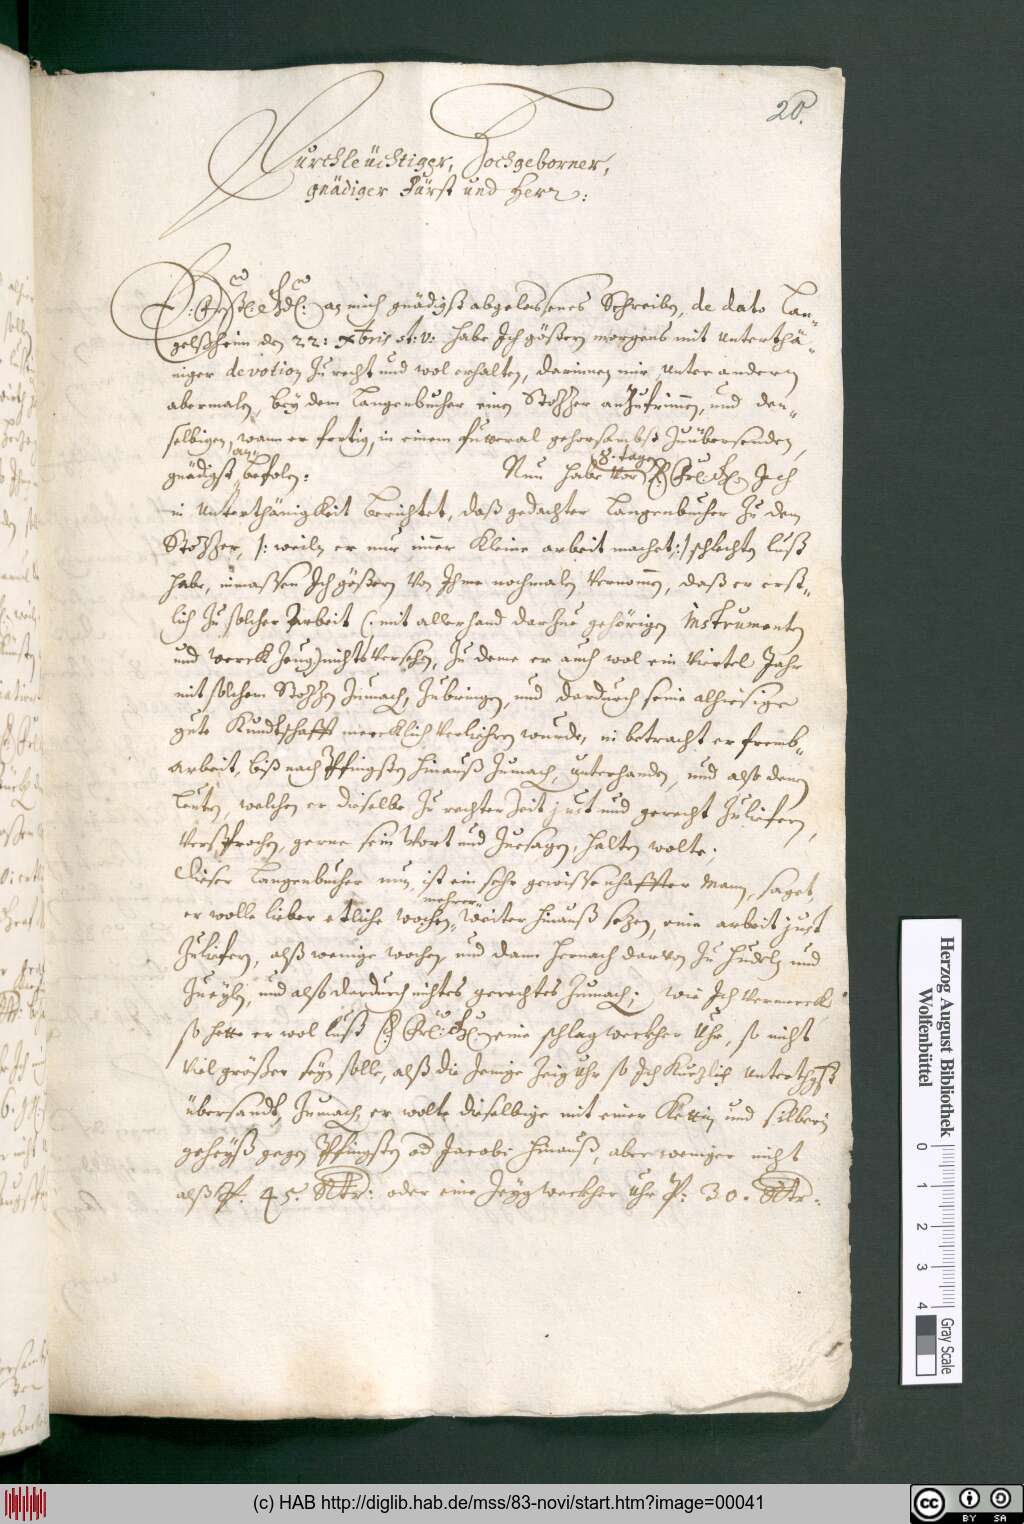 20.
Durchleüchtiger, Hochgeborner,
gnädiger Fürst und Herr:
E: Fürstl: Gd: an mich gnädigst abgelassenes Schreiben, de dato Lan-
gelßheim den 22: Xbris st: v: habe Ich gößtern morgens mit unterthä-
niger devotion zu recht und wol erhalten, darinnen mir unter andern
abermalen, bey dem Langenbucher einen Stohzer anzufrimmen, und den-
selbigen, wann er fertig, in einem fuoteral gehorsambst zuübersenden,
gnädigst an befolen: Nun habe vor 8. tagen E: Frl: Gd: Ich
in unterthänigkeit berichtet, daß gedachter Langenbucher zu dem
Stohzer, /: weiln er nur immer kleine arbeit machet :/ schlechten lust
habe, inmassen Ich gößtern von Ihme nochmaln vernommen, daß er erst-
lich zu solcher Arbeit (: mit allerhand darzue gehörigen Instrumenten
und werck Zeug) nichts versehen, zu deme er auch wol ein viertel Jahr
mit solchem Stohzen zumachen, zubringen, und dardurch seine alhiesige
gute Kundtschafft mercklich verliehren wurde, in betracht er fremb-
arbeit, biß nach Pfingsten hinauß zumachen, unterhanden, und also denen
Leuten, welchen er dieselbe zu rechter Zeit just und gerecht zuliefern,
versprochen, gerne sein Wort und Zuesagen, halten wolte;
Dieser Langenbucher nun, ist ein sehr gewissenhaffter Mann, saget,
er wolle lieber etliche wochen, mehrer weiter hinauß setzen, eine arbeit just
zuliefern, alß wenige wochen, und dann hernach darvon zu hudlen und
zueylen, und also dardurch nichtes gerechtes zumachen; wie Ich vermercke
so hette er wol lust E: Frl: Gd: eine schlag weckher Uhr, so nicht
viel größer seyn solle, alß die jenige Zeig Uhr so Ich kürzlich unterthgst
übersandt, zumachen, er wolte dieselbige mit einer Kettin und silberin
geheyß gegen Pfingsten od Jacobi hinauß, aber weniger nicht
alß P: 45. Rtr: oder eine Zeyg weckher Uhr P: 30. Rtr:
Herzog August Bibliothek
Wolfenbüttel
0 1 2 3 4
Gray Scale
(c) HAB http://diglib.hab.de/mss/83-novi/start.htm?image=00041
cc BY SA